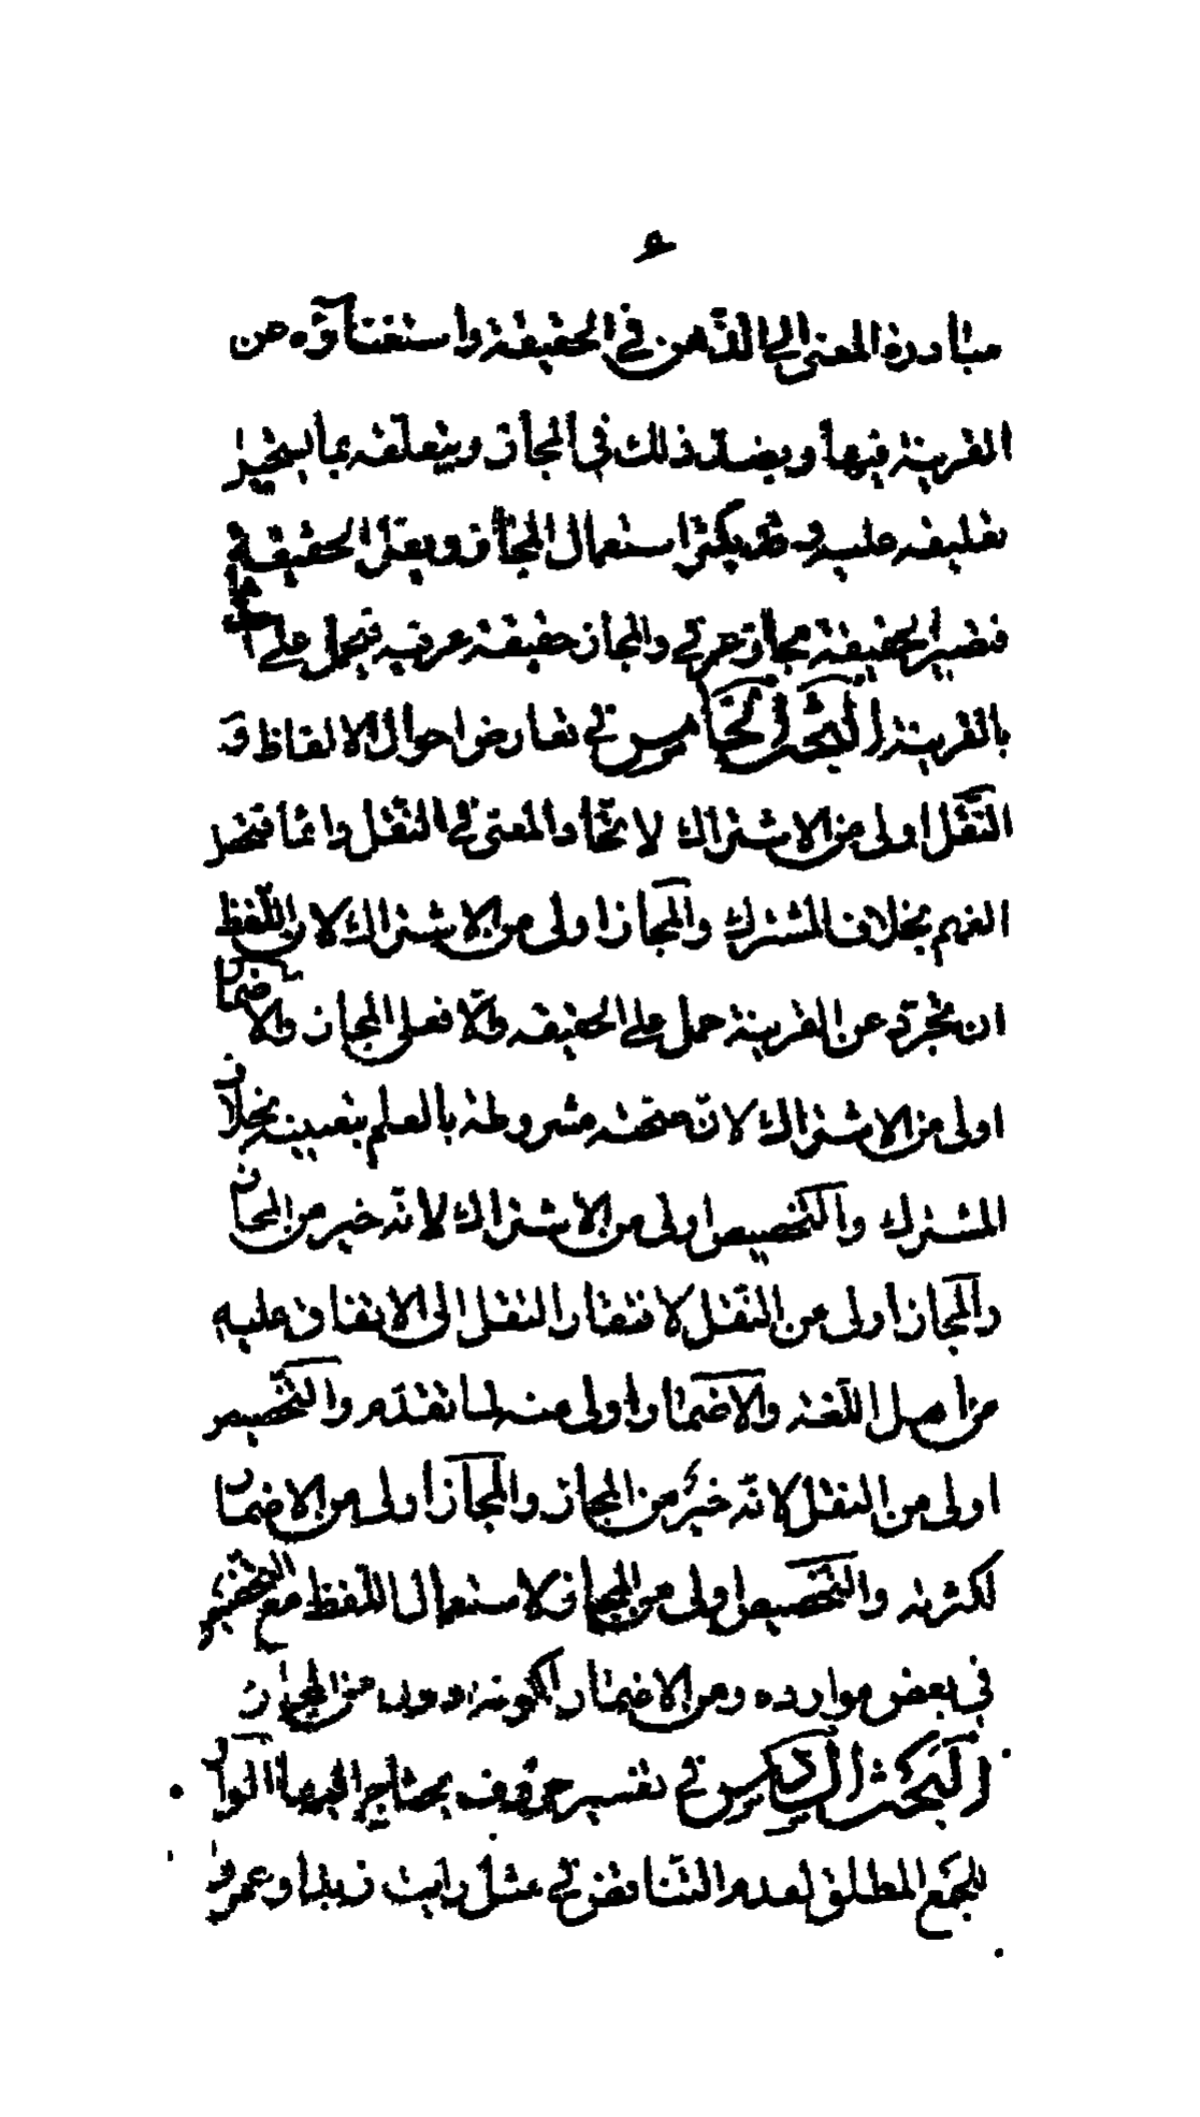 ۶
مبادرة المعنى الى الذهن في الحقيقة واستغناؤه عن
القرينة فيها وبضد ذلك في المجاز وبتعلقه بما يستحيل
تعليقه عليه وقد يكثر استعمال المجاز ويقل الحقيقة
فتصير الحقيقة مجاز عرفي والمجاز حقيقة عرفية فيحمل على
بالقرينة البحث الخامس في تعارض احوال الالفاظ قد
النقل اولى من الاشتراك لاتحاد المعنى في النقل دائما فيحصل
الفهم بخلاف المشترك والمجاز اولى من الاشتراك لان اللفظ
ان تجرد عن القرينة حمل على الحقيقه والا فعلى المجاز والاضمار
اولى من الاشتراك لان صحته مشروطة بالعلم بتعيينه بخلاف
المشترك والتخصيص اولى من الاشتراك لانه خير من المجاز
والمجاز اولى من النقل لافتقار النقل الى الاتفاق عليه
من اهل اللغة والاضمار اولى منه لما تقدم والتخصيص
اولى من النقل لانه خير من المجاز والمجاز اولى من الاضمار
لكثرته والتخصيص اولى من المجاز لاستعمال اللفظ مع التخصيص
في بعض موارده ومن الاضمار لكونه ادون من المجاز
البحث السادس في تفسير حروف يحتاج اليها الواو
للجمع المطلق لعدم التناقض في مثل رايت زيدا وعمروا